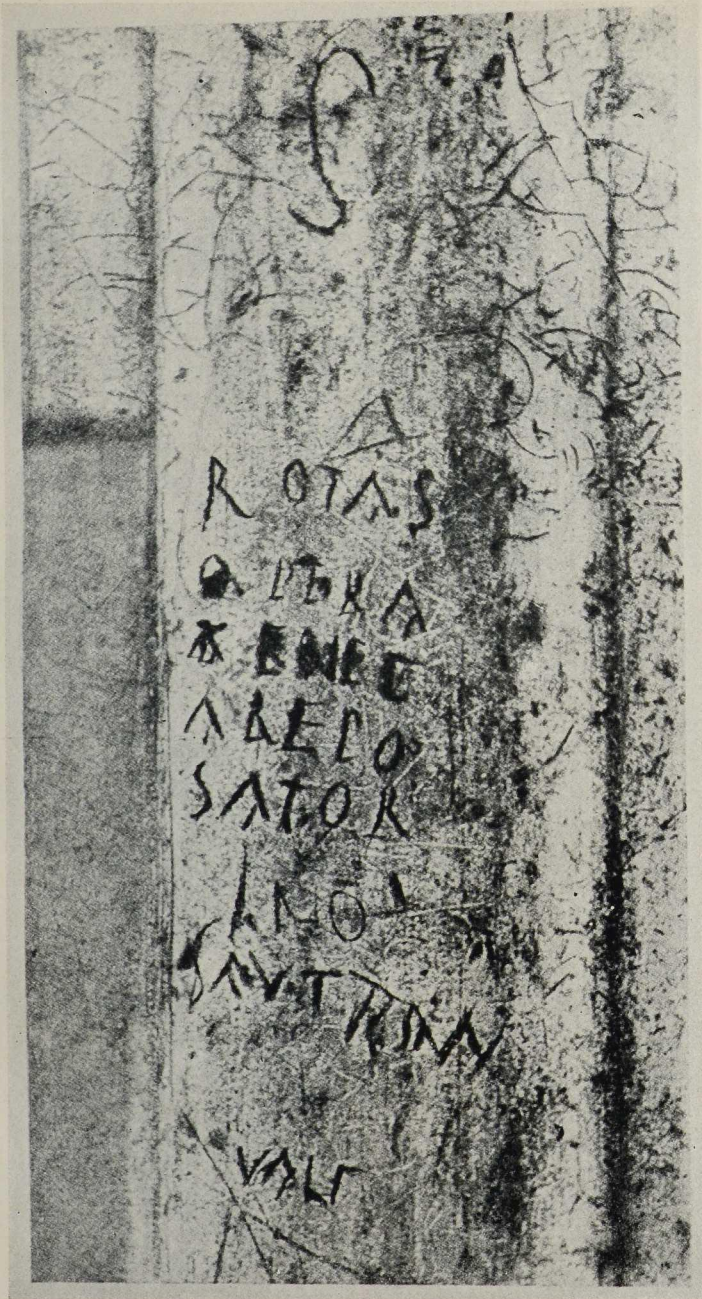 S
A
ROTAS
OPERA
TENET
AREPO
SATOR
SAVTRAN
VALE